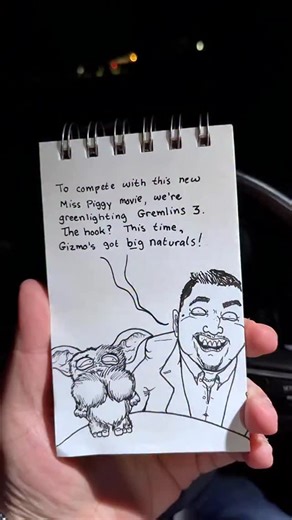 To compete with this new
Miss Piggy movie, we're
greenlighting Gremlins 3.
The hook? This time,
Gizmo's got big naturals!